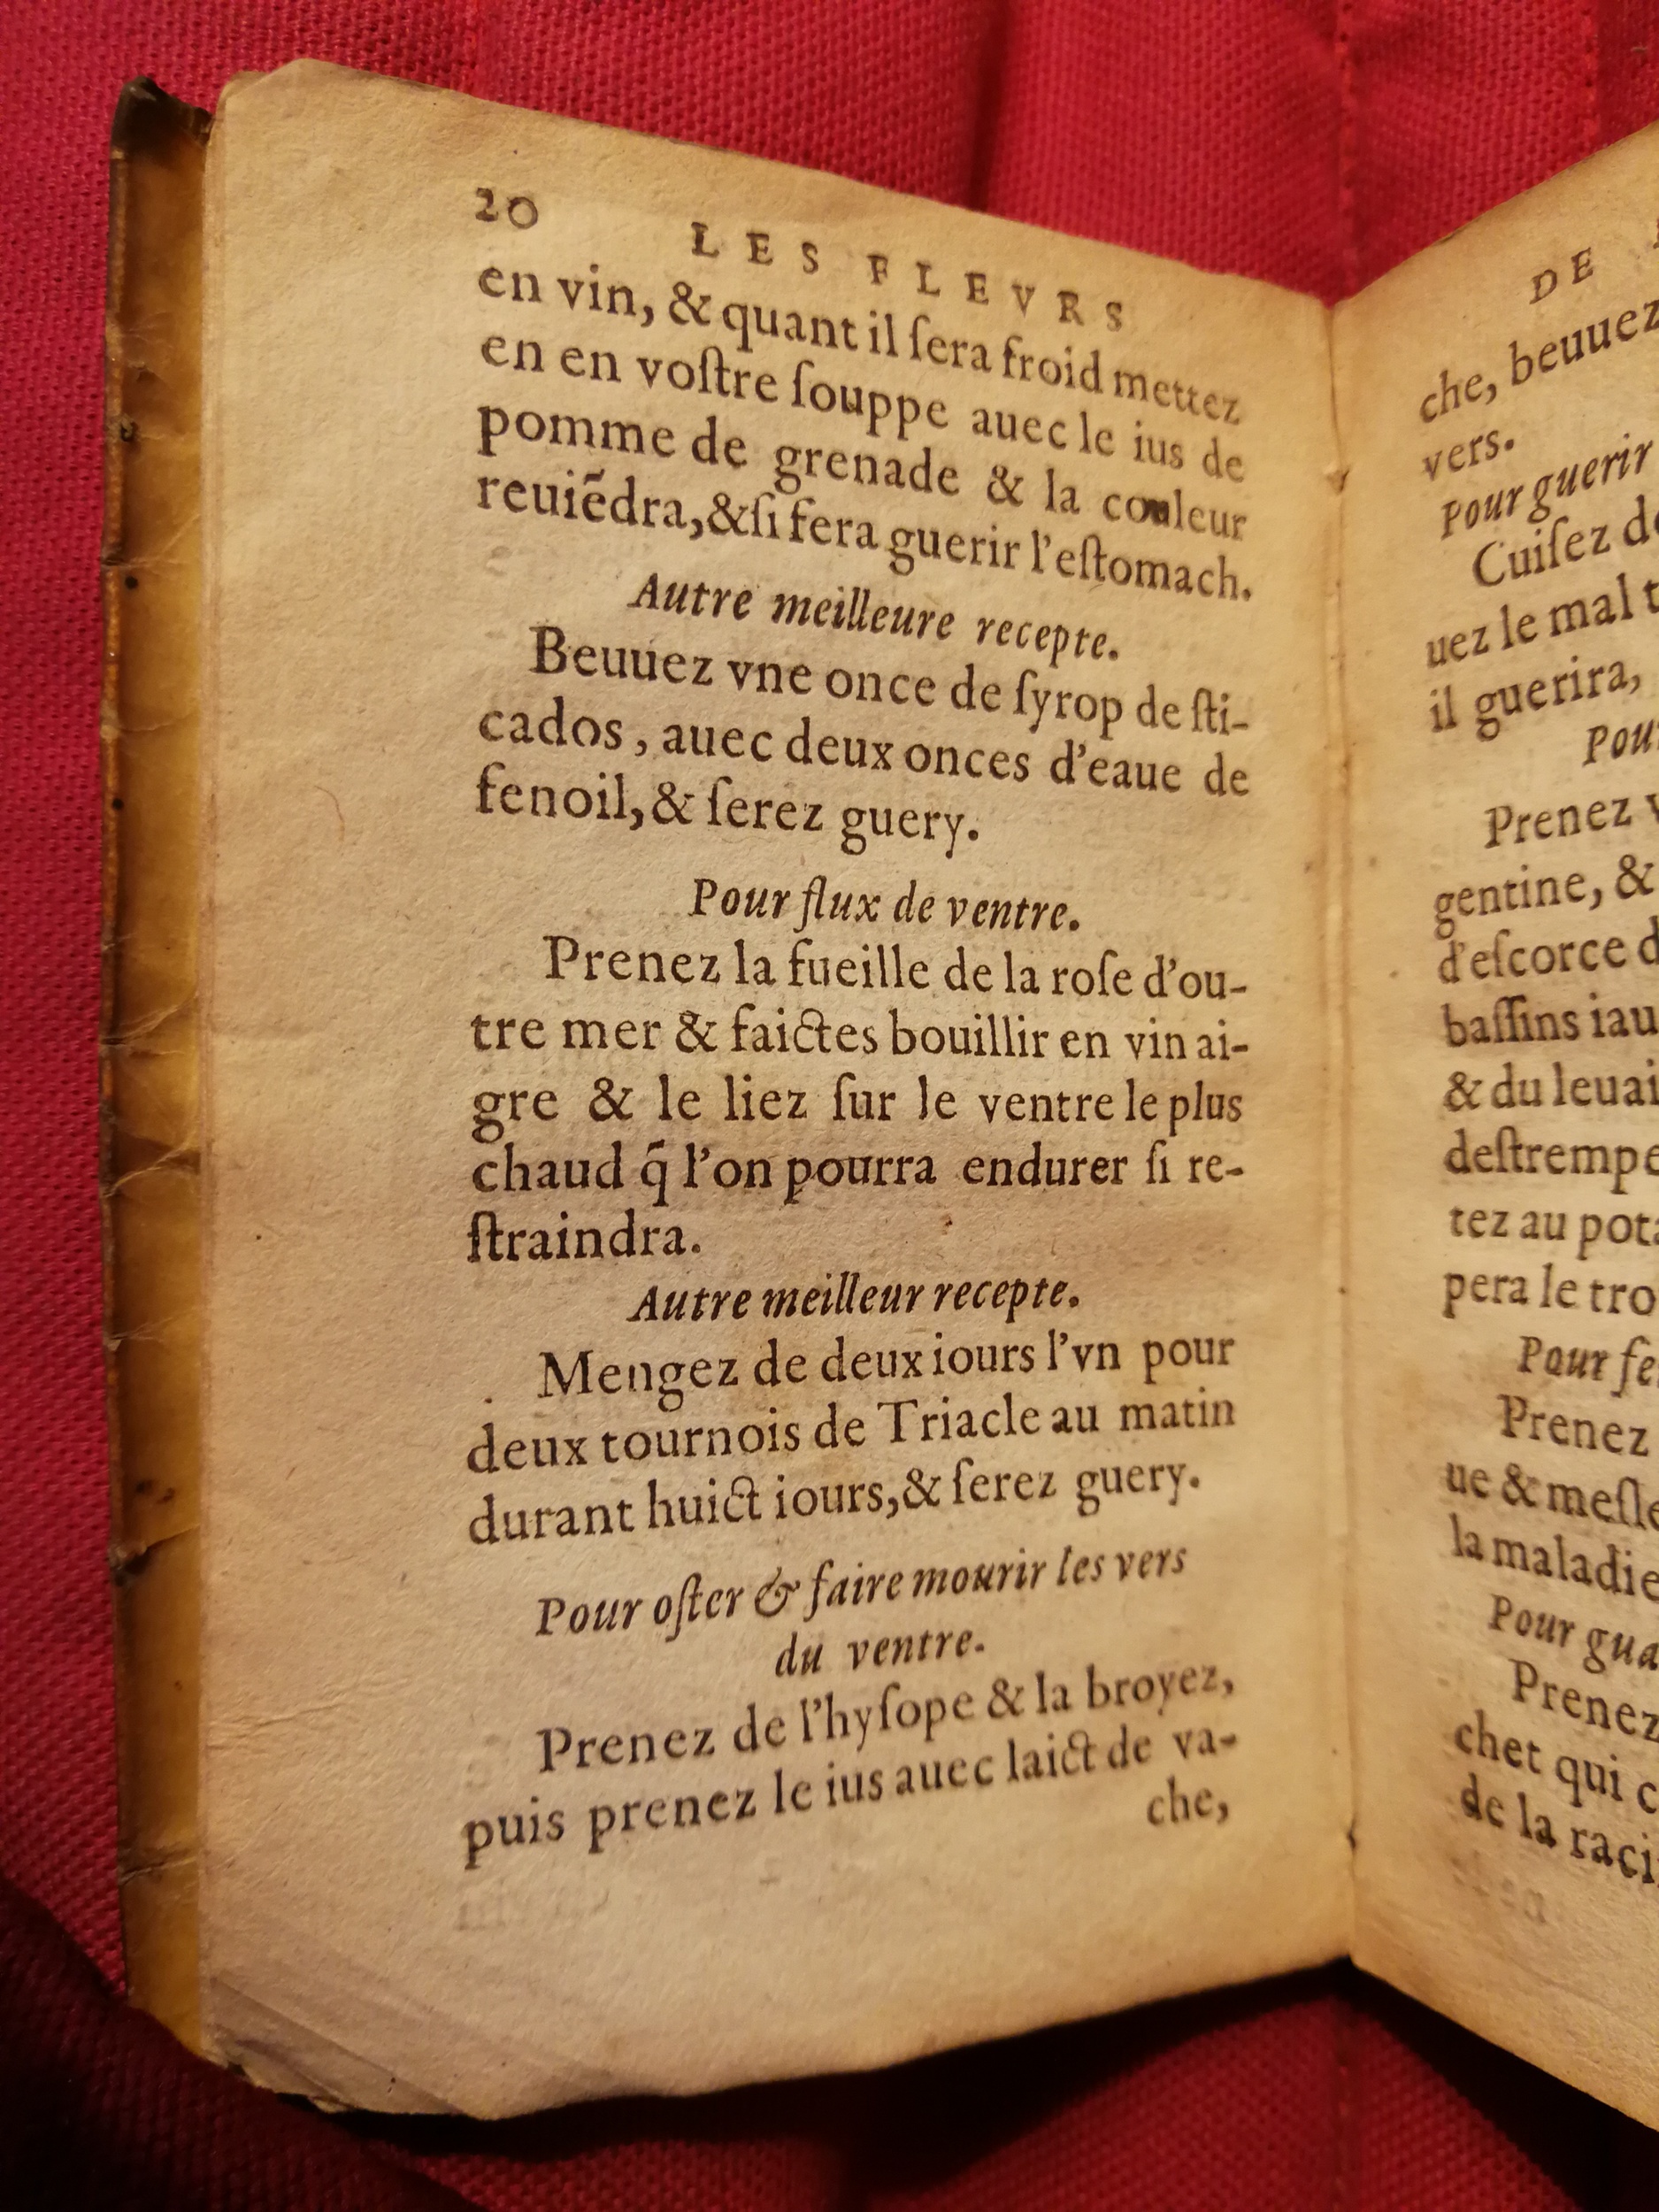 20 LES FLEVRS
en vin, & quant il ſera froid mettez
en en voſtre ſouppe auec le ius de
pomme de grenade & la couleur
reuiẽdra,&ſi fera guerir l'eſtomach.
Autre meilleure recepte.
Beuuez vne once de ſyrop de ſti-
cados, auec deux onces d'eaue de
fenoil,& ſerez guery.
Pour flux de ventre.
Prenez la fueille de la roſe d'ou-
tre mer & faictes bouillir en vin ai-
gre & le liez ſur le ventre le plus
chaud q̃ l'on pourra endurer ſi re-
ſtraindra.
Autre meilleur recepte.
Mengez de deux iours l'vn pour
deux tournois de Triacle au matin
durant huict iours,& ſerez guery.
Pour oſter & faire mourir les vers
du ventre.
Prenez de l'hyſope & la broyez,
puis prenez le ius auec laict de va-
che,
DE
che, beuuez
vers.
Pour guerir
Cuiſez
uez le mal
il guerira,
Prenez
gentine, &
d'eſcorce
baſſins
& du
tez au
pera le
Pour
Prenez
ue & 
la maladie
Pour
Prenez
chet qui
de la